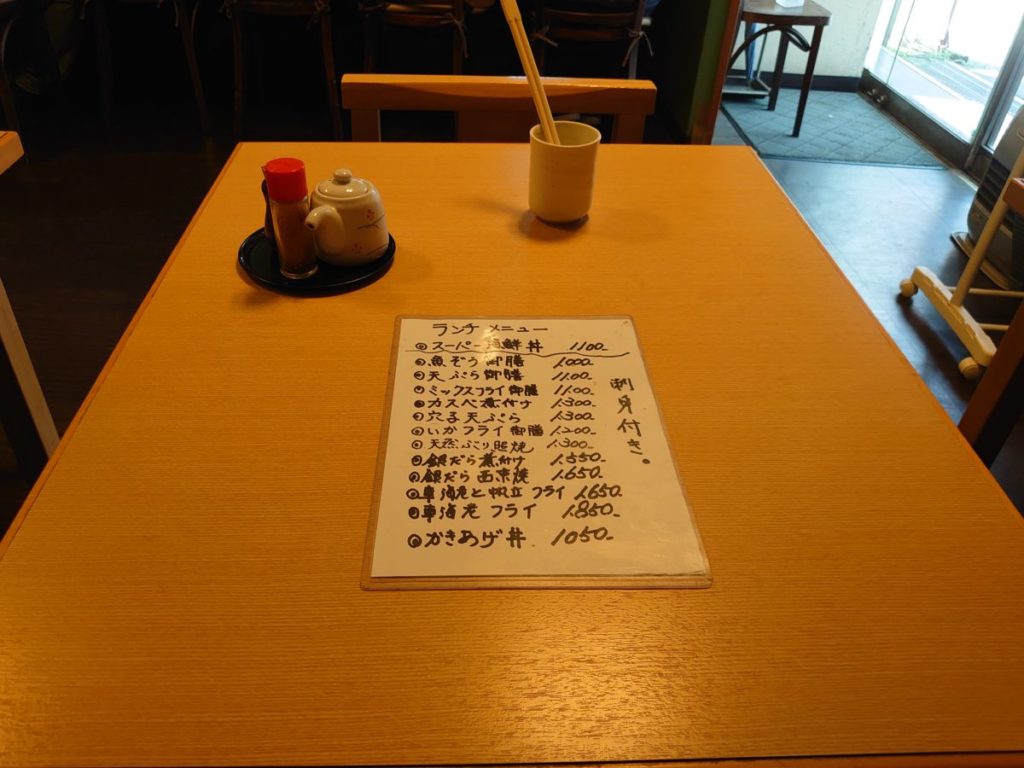 ランチ メニュー
◎スーパー海鮮丼 1100-
◎魚ぞう御膳 1,000-
◎天ぷら御膳 1,100-
◎ミックスフライ御膳 1,100-
◎カスベ煮付け 1,300-
◎穴子天ぷら 1,300-
◎いかフライ御膳 1,200-
◎天然ぶり照焼 1,300-
◎銀だら煮付け 1,550-
◎銀だら西京焼 1,650-
◎車海老と帆立フライ 1,650-
◎車海老フライ 1,850-
◎かきあげ丼 1050-
刺身付き。